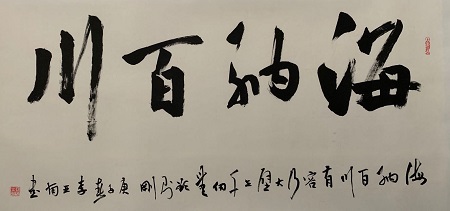 海納百川
海納百川有容乃大壁立千仞無欲則剛庚子春李正有書